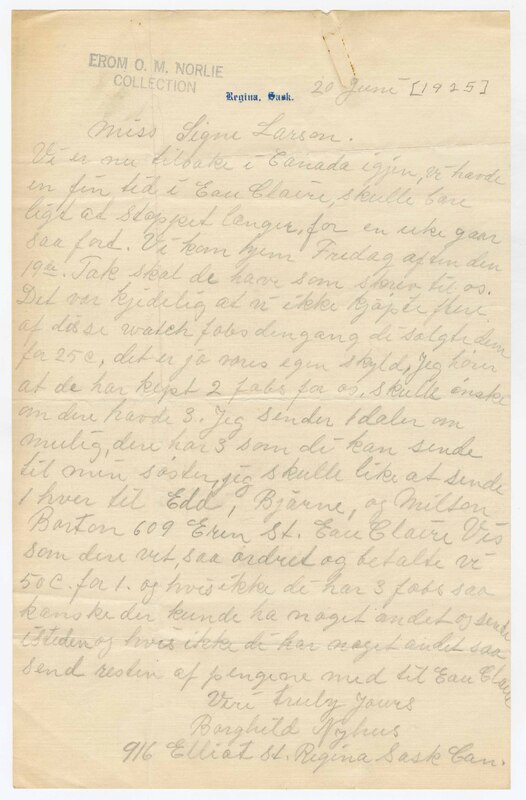 FROM O. M. NORLIE
COLLECTION
Regina, Sask.
20 Juni [1925]
Miss Signe Larson.
Vi er nu tilbake i Canada igjen, vi havde
en fin tid i Eau Claire, skulle bare
ligt at stoppet langer, for en uke gaar
saa fort. Vi kom hjem Fredag aften den
19de. Tak skal de have som skrev til os.
Det var kjedelig at vi ikke kjøpte flere
af disse watch fobs dengang di solgte dem
for 25c, det er jo vores egen skyld, Jeg hører
at de har kept 2 fobs for os, skulle ønske
om dere havde 3. Jeg sender 1 daler om
mulig, dere har 3 som di kan sende
til min søster, jeg skulle like at sende
1 hver til Edd, Bjarne, og Milton
Barton 609 Erin St. Eau Claire Vis
som dere vet, saa ordret og betalte vi
50c. for 1. og hvis ikke di har 3 fobs saa
kanske der kunde ha noget andet og sende
istiden og hvis ikke di har noget andet saa
send resten af pengene med til Eau Claire
Veri truly Yours
Borghild Nyhus
916 Elliot St. Regina Sask Can.